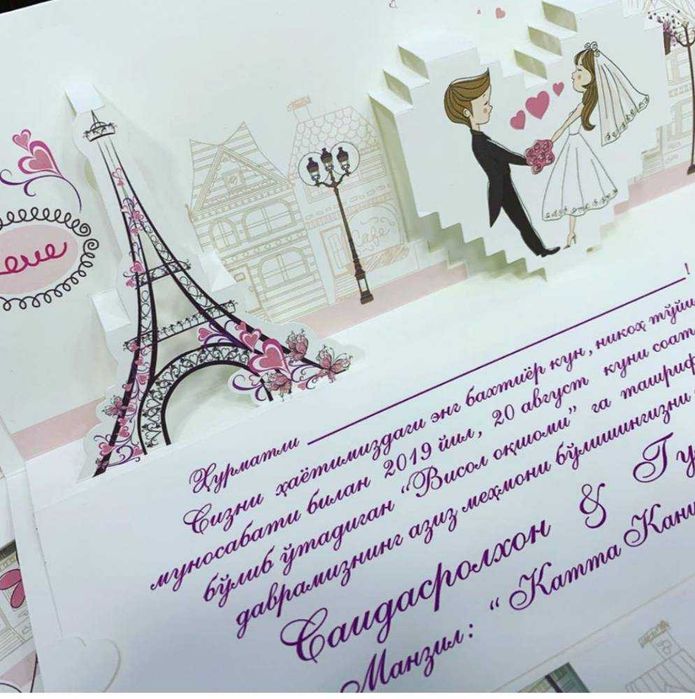 Ҳурматли ____________________!
Сизни ҳаётимиздаги энг бахтиёр кун, никоҳ тўйи
муносабати билан 2019 йил, 20 август куни соат
бўлиб ўтадиган “Висол оқшоми” га ташриф
даврамизнинг азиз меҳмони бўлишингизни
Саидасролхон & Гу
Манзил: “Катта Кани
Cafe